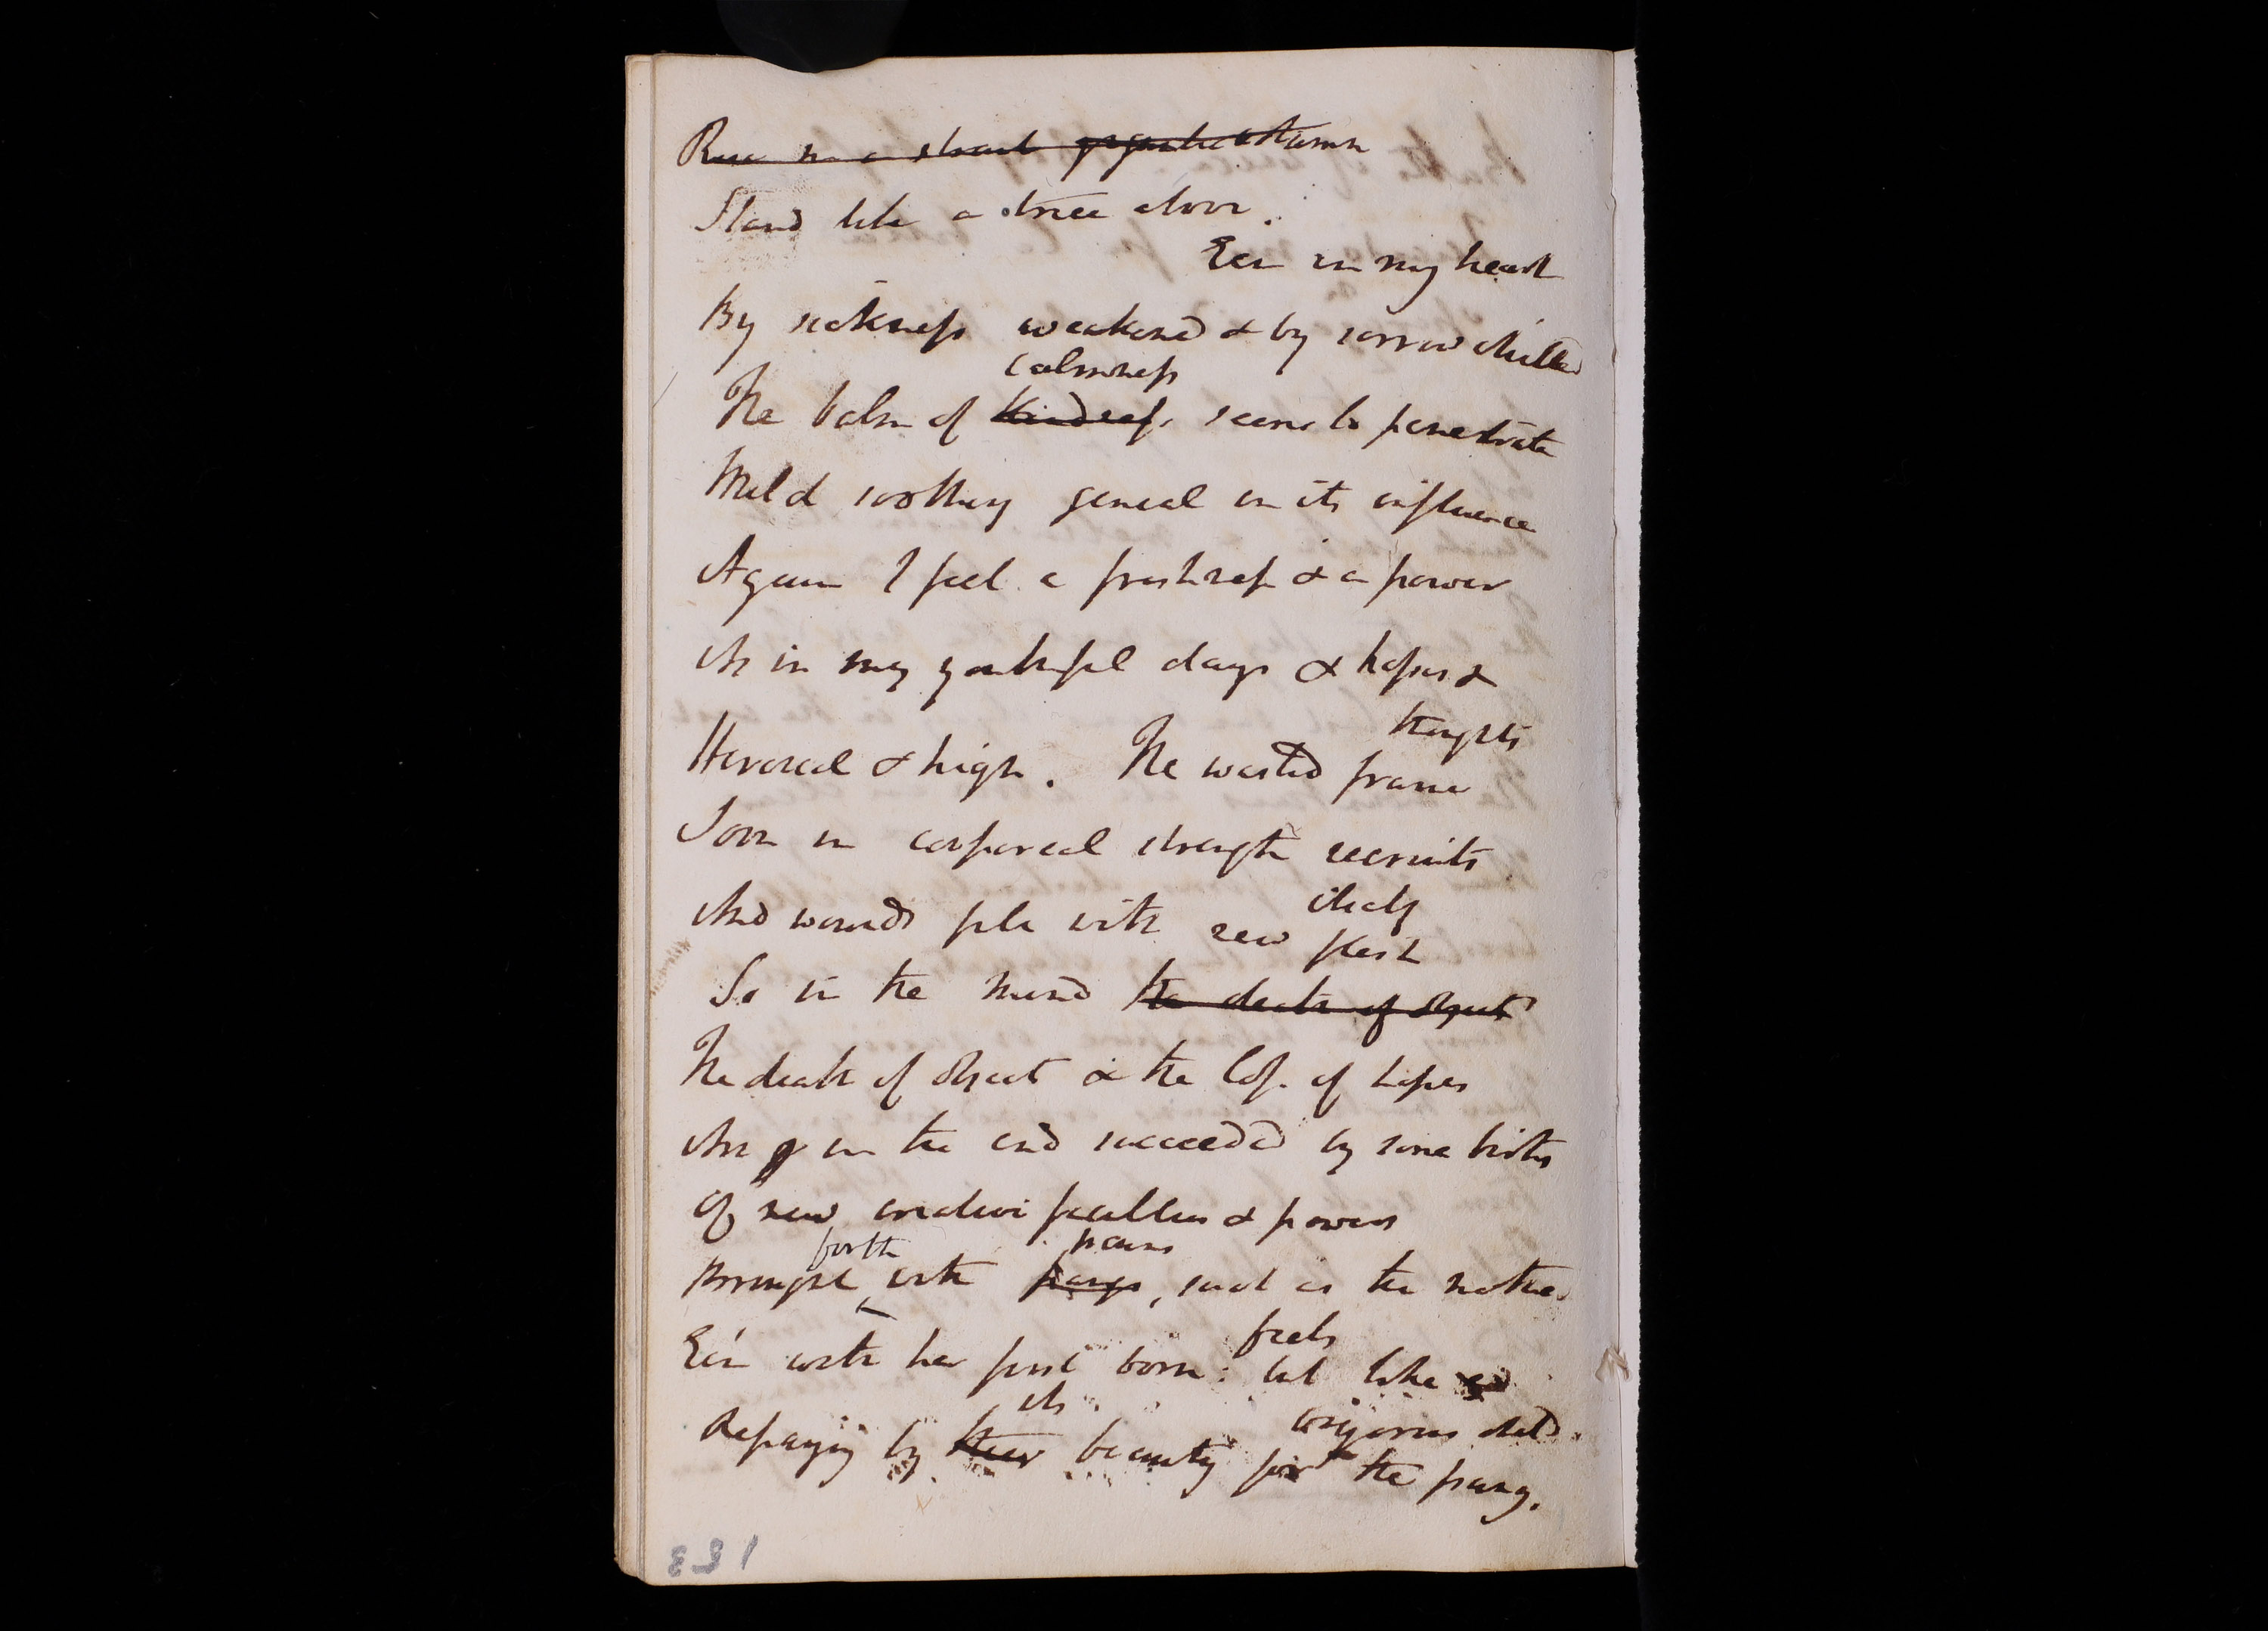 Rise in a cloud gigantic column
Stand like a tree above.
Een in my heart
By sickness weakened & by sorrow chilled
calmness
The balm of kindness seems to penetrate
Mild soothing genial in its influence
Again I feel a freshness & a power
As in my youthful days & hopes &
thoughts
Heroical & high. The wasted frame
Soon in corporeal strength recruits
itself
And wounds fill with new flesh
So in the mind the death of object
The death of object & the loss of hopes
Are in the end succeeded by some births
Of new creative faculties & powers
forth pains
Brought with pangs, such as the mother
feels
Een with her first born: but like
its vigorous child.
Repaying by their beauty for the pang.
133